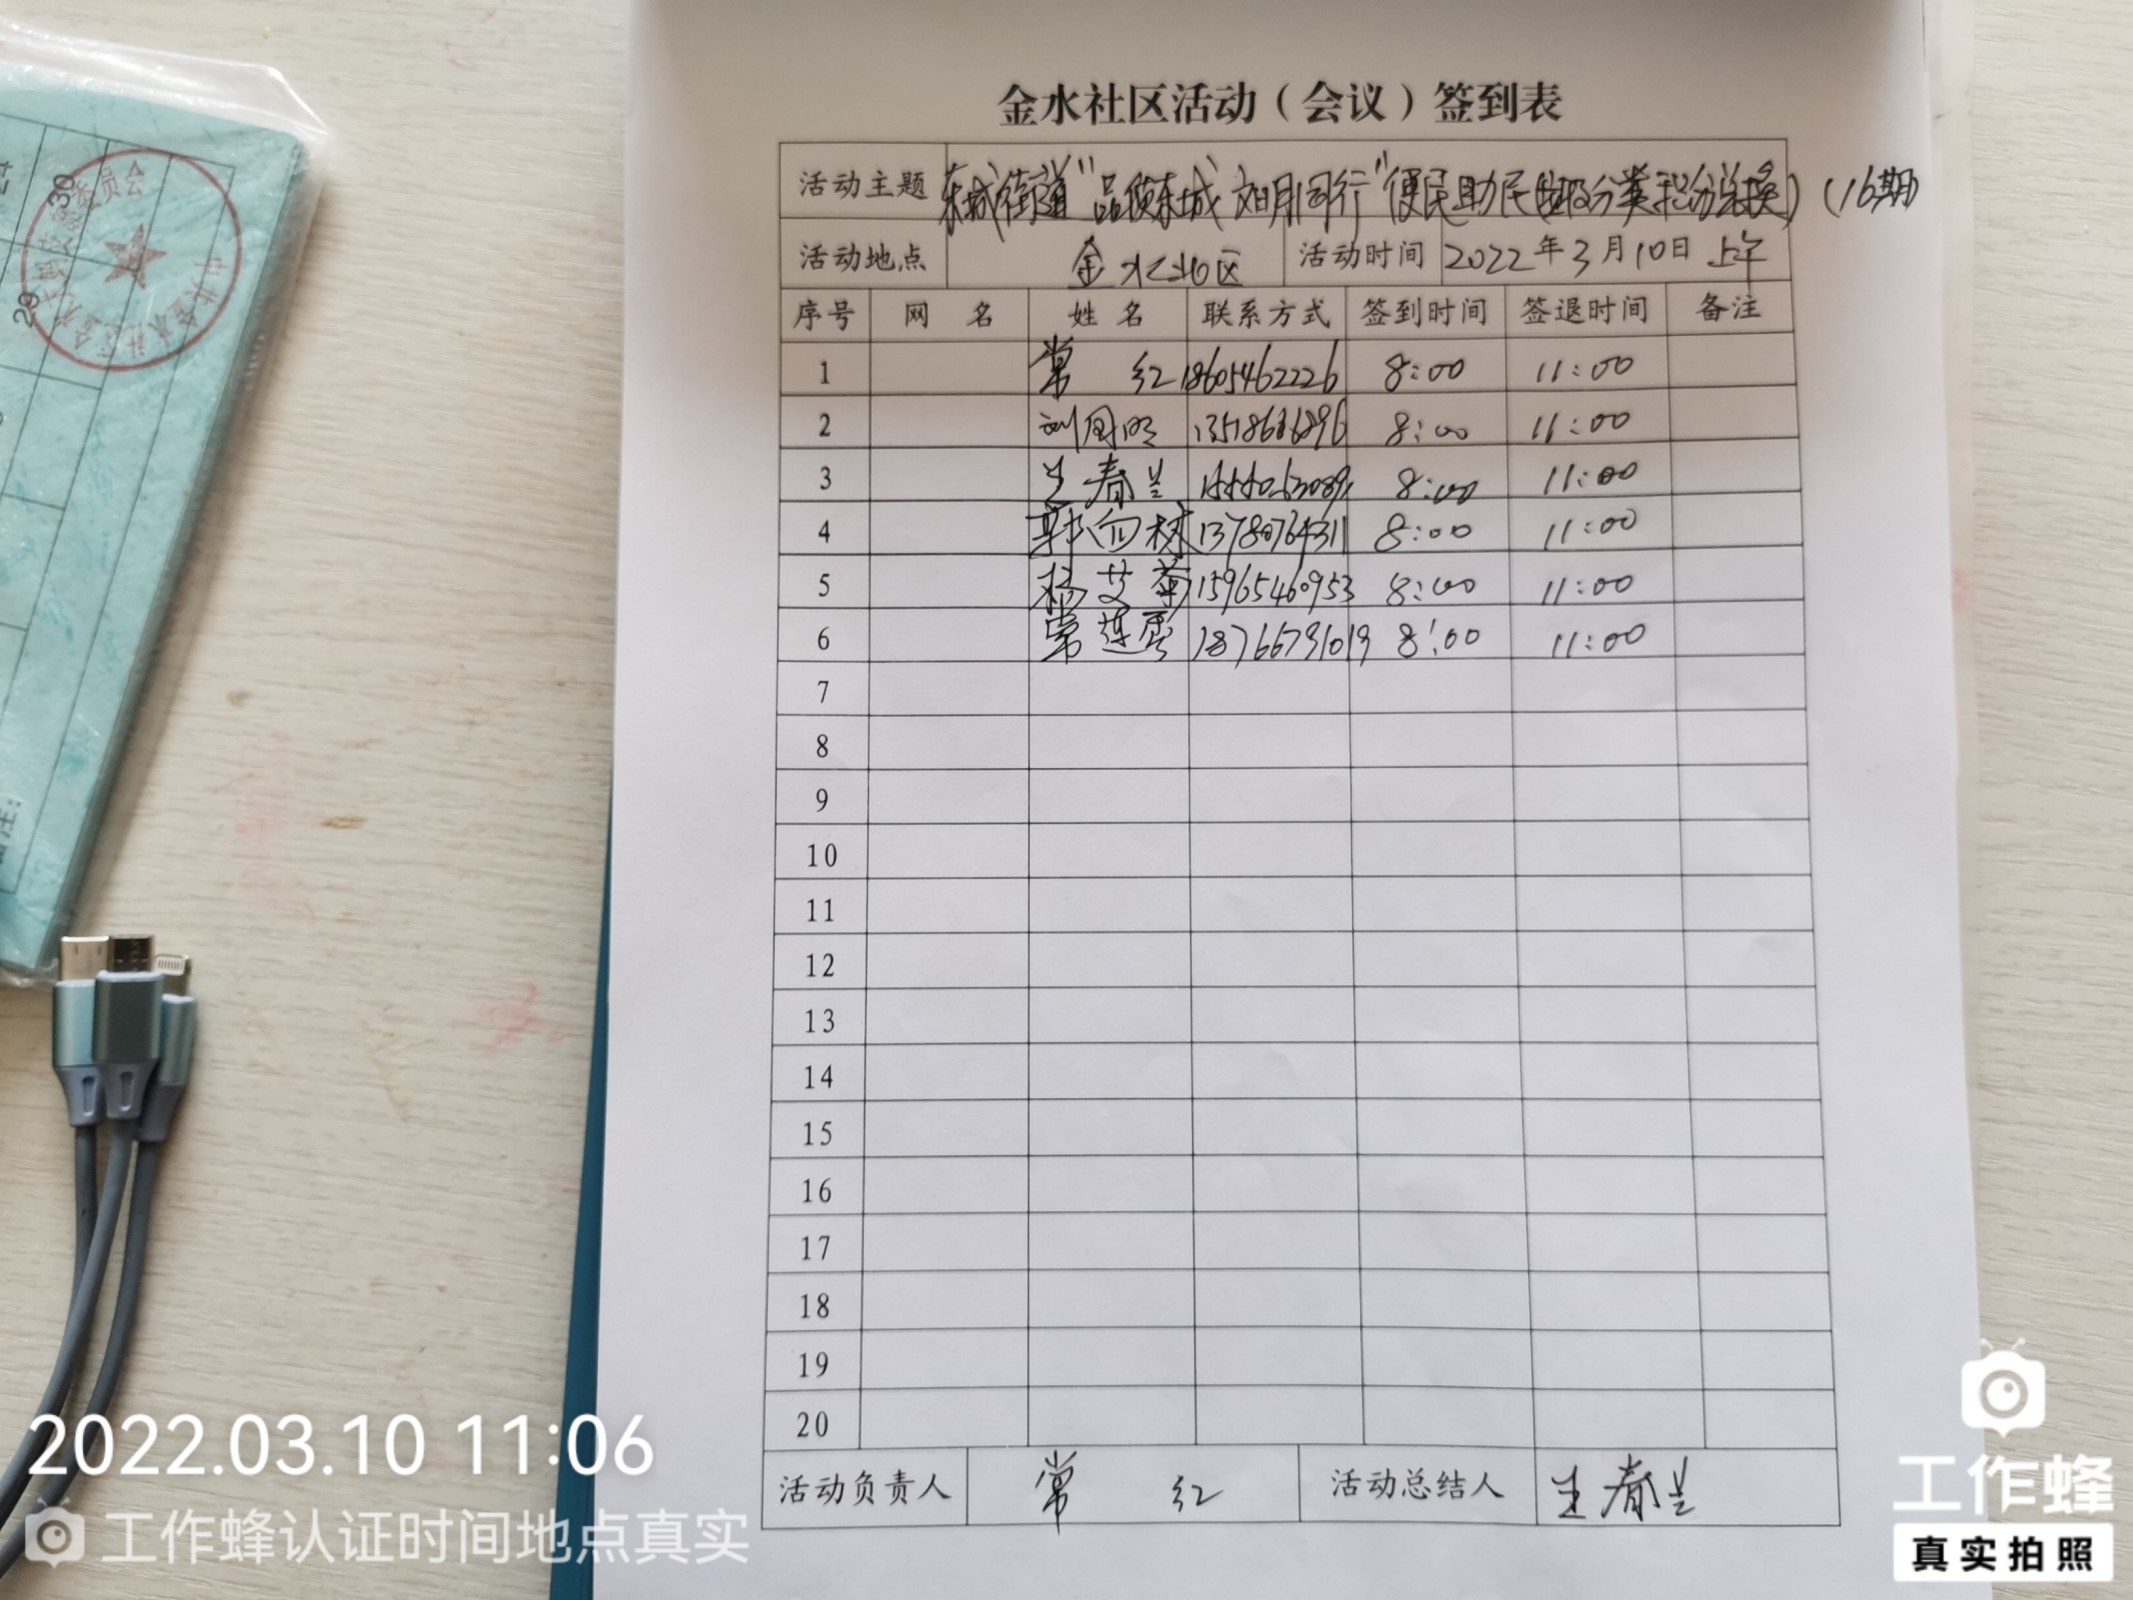 金水社区活动（会议）签到表
活动主题 东城街道"品质东城 文明同行"便民助民(垃圾分类积分兑换)(16期)
活动地点 金水北区 活动时间 2022年3月10日 上午
序号 网 名 姓 名 联系方式 签到时间 签退时间 备注
1 常 红 18605462226 8:00 11:00
2 8:00 11:00
3 王春兰 8:00 11:00
4 郭向林 13780764311 8:00 11:00
5 杨艾菊 15965460953 8:00 11:00
6 常莲秀 18766791019 8:00 11:00
7
8
9
10
11
12
13
14
15
16
17
18
19
20
活动负责人 常 红 活动总结人 王春兰
30
29
2022.03.10 11:06
工作蜂认证时间地点真实
工作蜂
真实拍照